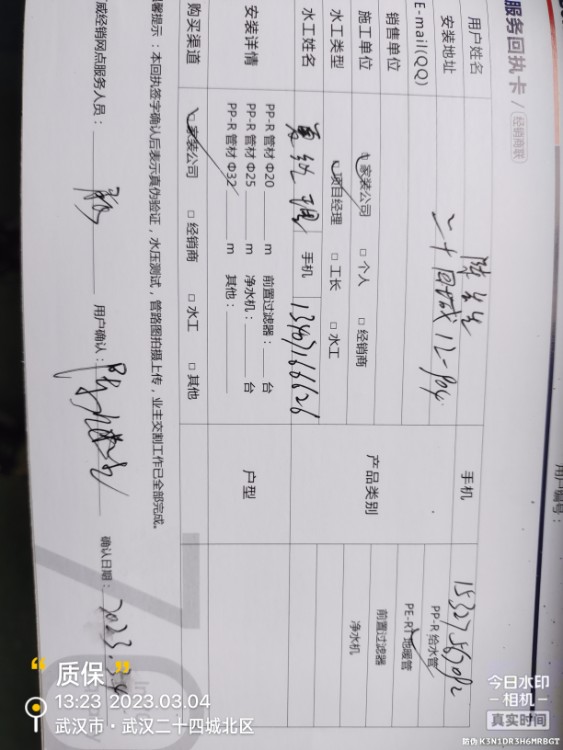 服务回执卡 / 经销商联
用户编号：
用户姓名 陈先生 手机
安装地址 二十四城12-904
E-mail(QQ)
销售单位
施工单位 家装公司 □ 个人 □ 经销商 产品类别 PP-R 给水管
水工类型 项目经理 □ 工长 □ 水工 PE-RT 地暖管
前置过滤器
净水机
水工姓名 手机 13467166626
安装详情 PP-R 管材 Φ20 m 前置过滤器： 台 户型
PP-R 管材 Φ25 m 净水机： 台
PP-R 管材 Φ32 m 其他：
购买渠道 家装公司 □ 经销商 □ 水工 □ 其他
提示：本回执签字确认后表示真伪验证，水压测试，管路图拍摄上传，业主交割工作已全部完成。
经销网点服务人员： 用户确认： 确认日期： 2023.3.4
质保
13:23 2023.03.04
武汉市·武汉二十四城北区
今日水印
-相机-
真实时间
防伪 K3N1DR3H6MRBGT